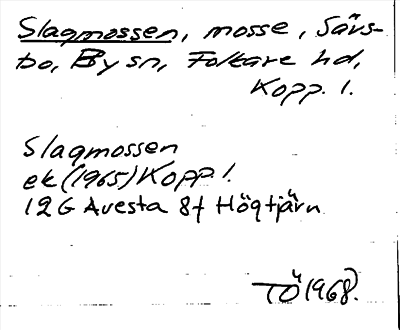 Slagmossen, mosse, Särs-
bo, By sn, Folkare hd,
Kopp. l.
Slagmossen
ek (1965) Kopp l.
12G Avesta 8f Högtjärn
TÖ 1968.